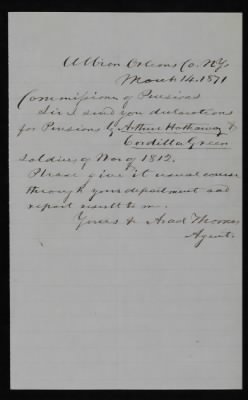 Albion Orleans Co. N.Y.
March 14. 1871
Commissioner of Pensions
Sir I send you declarations
for Pensions by Arthur Hathaway &
Cordilla Green
Soldiers of War of 1812.
Please give it usual course
through your department and
report result to me.
Yours &c Arad Thomas
Agent.